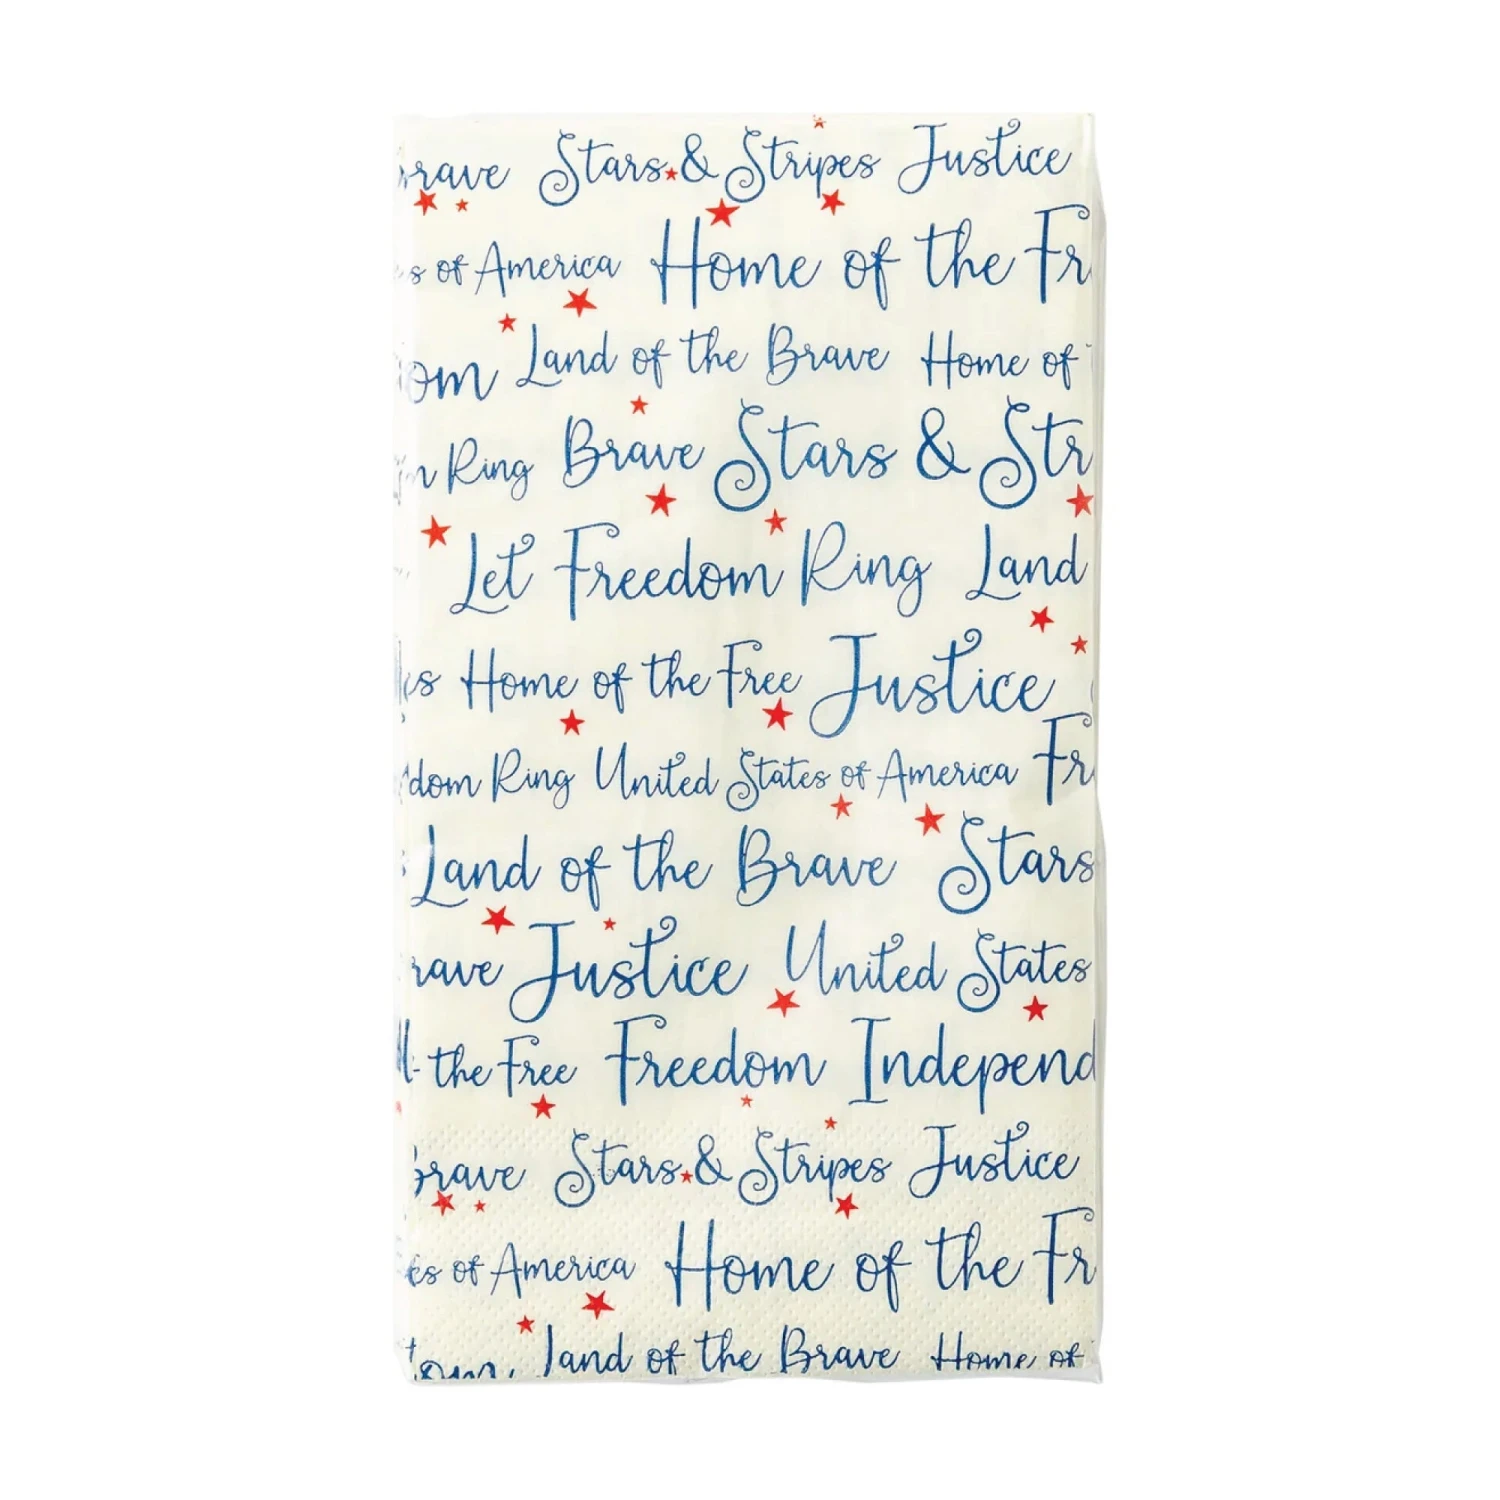 Brave Stars & Stripes Justice
s of America Home of the Fr
om Land of the Brave Home of
m Ring Brave Stars & Str
Let Freedom Ring Land
es Home of the Free Justice
dom Ring United States of America Fr
Land of the Brave Stars
rave Justice United States
the Free Freedom Independ
Brave Stars & Stripes Justice
es of America Home of the Fr
om Land of the Brave Home of